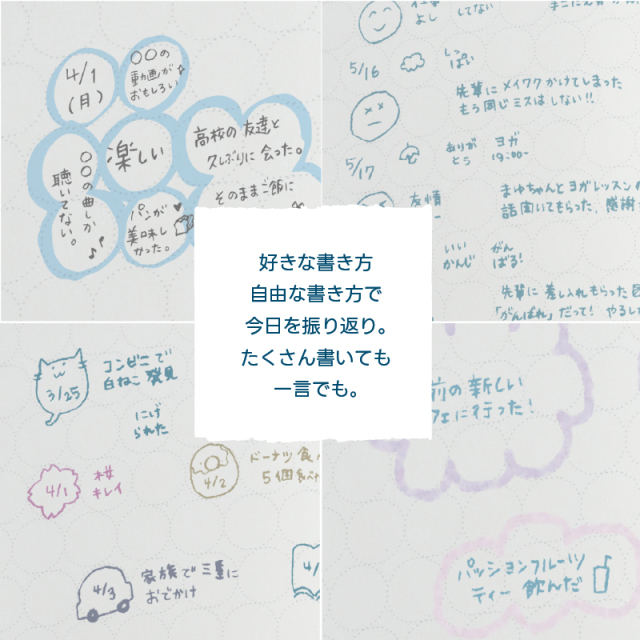 4/1
(月)
〇〇の
動画が
おもしろい
楽しい
〇〇の曲しか
聴いてない。
パンが♥
美味し
かった。
高校の友達と
久しぶりに会った。
そのままご飯に
よし
してない
5/16
しっ
ぱい
先輩にメイワクかけてしまった
もう同じミスはしない!!
5/17
ありが
とう
ヨガ
19:00~
友情
まゆちゃんとヨガレッスンの
話聞いてもらった。感謝
いい
かんじ
がん
ばる!
先輩に差し入れもらった
「がんばれ」だって!
好きな書き方
自由な書き方で
今日を振り返り。
たくさん書いても
一言でも。
3/25
コンビニで
白ねこ発見
にげ
られた
4/1
桜
キレイ
4/2
ドーナツ食
5個
4/3
家族で三重に
おでかけ
4/
前の新しい
フェに行った!
パッションフルーツ
ティー飲んだ